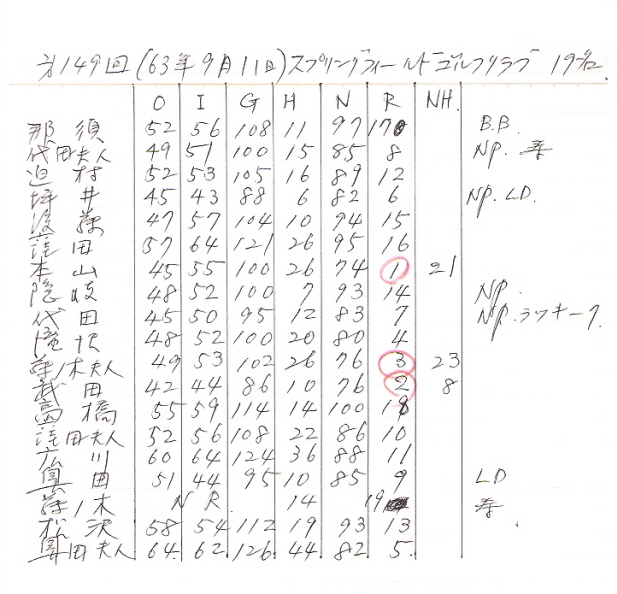 149回(63年9月11日)スプリングフィールドゴルフクラブ 19名
O I G H N R NH.
那須 52 56 108 11 97 17 B.B.
代田夫人 49 51 100 15 85 8 NP.
迫村 52 53 105 16 89 12
坪井 45 43 88 6 82 6 NP. LD.
後藤 47 57 104 10 94 15
窪田 57 64 121 26 95 16
本山 45 55 100 26 74 1 21
隠岐 48 52 100 7 93 14 NP.
代田 45 50 95 12 83 7 NP. ラッキー7.
48 52 100 20 80 4
木夫人 49 53 102 26 76 3 23
武田 42 44 86 10 76 2 8
高橋 55 59 114 14 100 18
窪田夫人 52 56 108 22 86 10
広川 60 64 124 36 88 11
奥田 51 44 95 10 85 9 LD
木 N R. 14 19
松沢 58 54 112 19 93 13
奥田夫人 64 62 126 44 82 5.